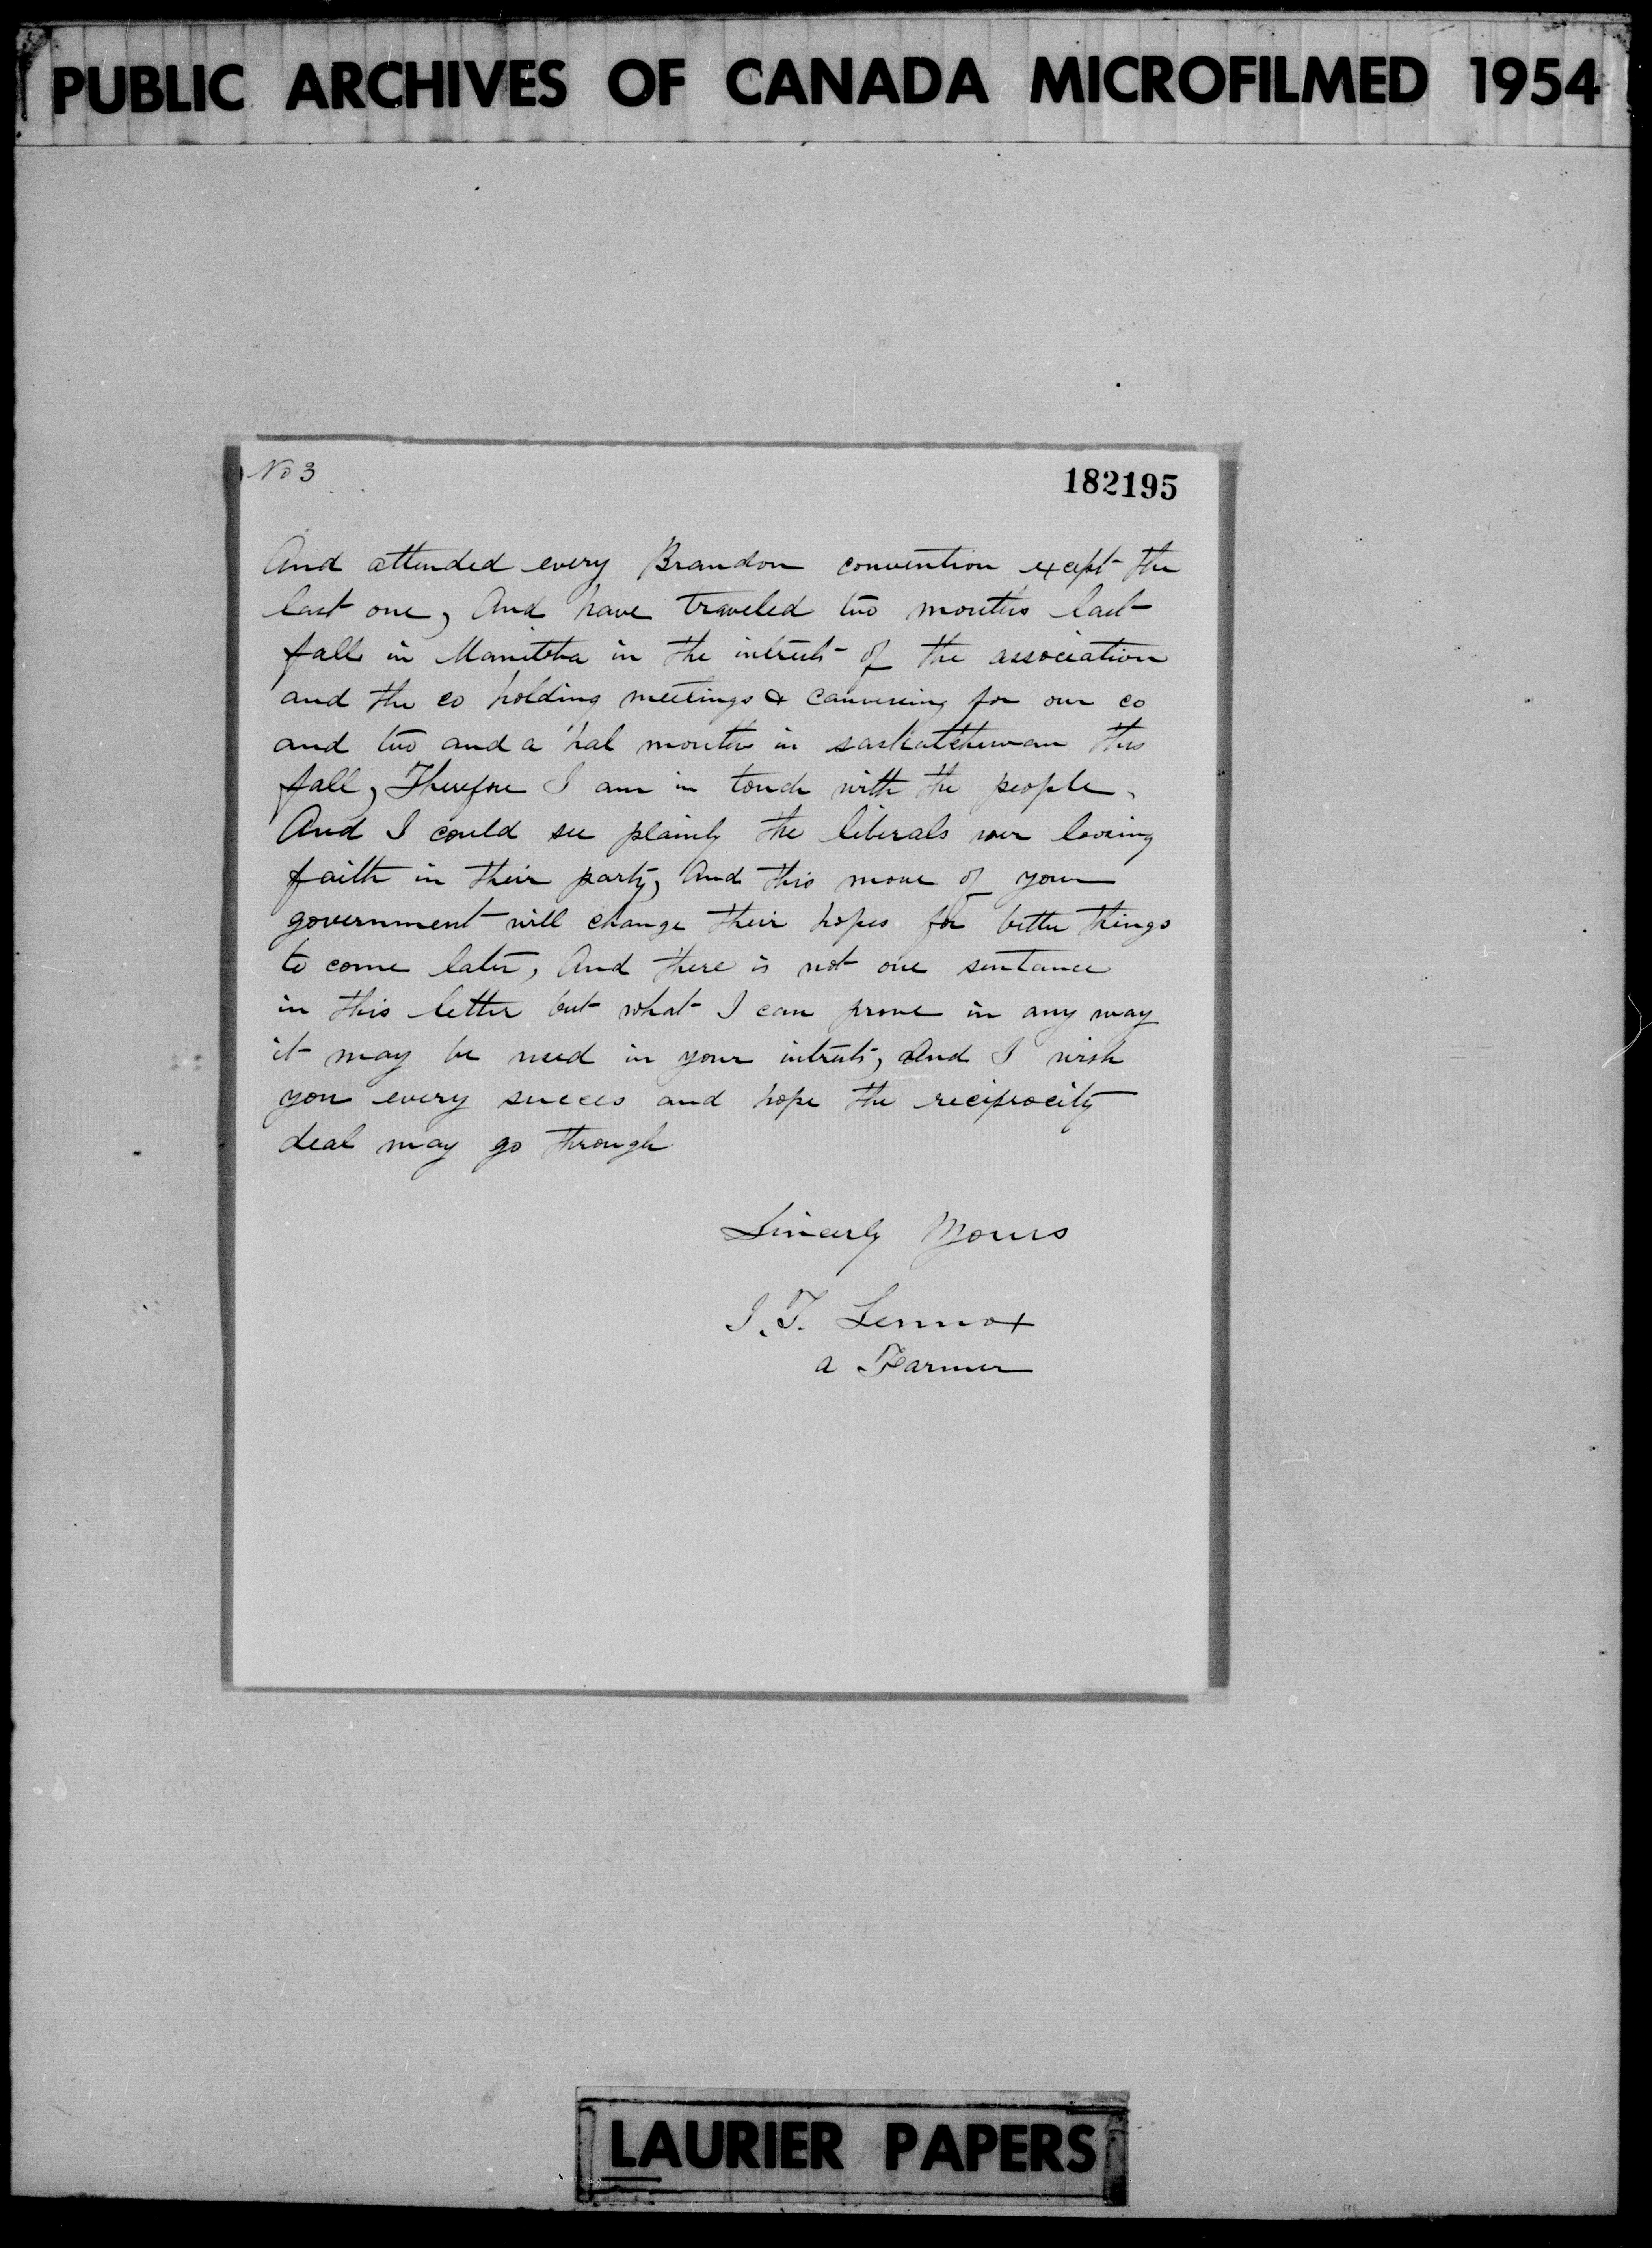 PUBLIC ARCHIVES OF CANADA MICROFILMED 1954
No 3
182195
And attended every Brandon convention except the
last one, And have traveled two months last
fall in Manitoba in the intrest of the association
and the co holding meetings & canvesing for our co
and two and a hal months in saskatchewan this
fall, Therefore I am in touch with the people,
And I could see plainly the liberals wer loosing
faith in their party, And this move of your
government will change their hopes for better things
to come later, And there is not one sentance
in this letter but what I can prove in any way
it may be used in your intrests, And I wish
you every succes and hope the reciprocity
deal may go through
Sincerly Yours
J. T. Lennox
a Farmer
LAURIER PAPERS